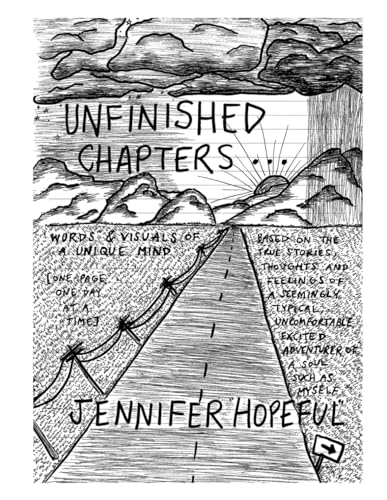 UNFINISHED
CHAPTERS...
WORDS & VISUALS OF
A UNIQUE MIND
[ONE PAGE
ONE DAY
AT A
TIME]
BASED ON THE
TRUE STORIES,
THOUGHTS AND
FEELINGS OF
A SEEMINGLY,
TYPICAL,
UNCOMFORTABLE
EXCITED
ADVENTURER OF
A SOUL
SUCH AS
MYSELF
JENNIFER "HOPEFUL"